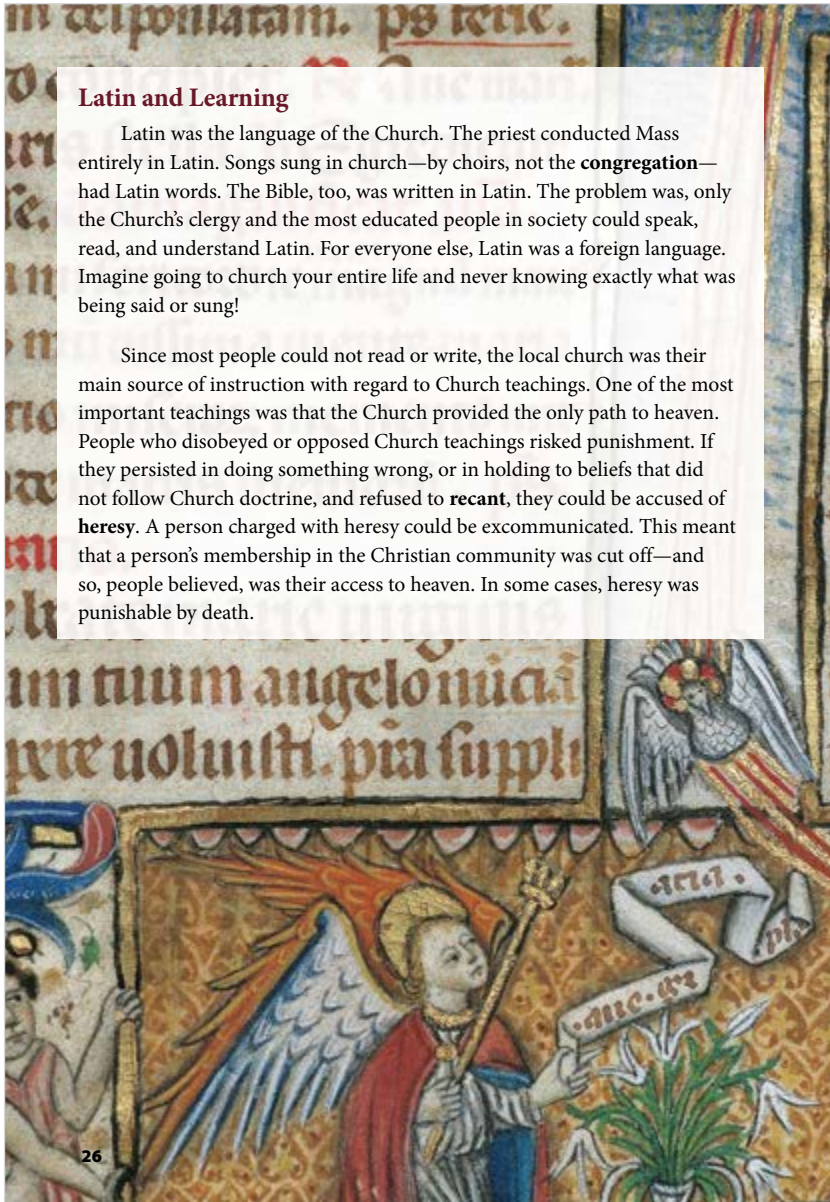 Latin and Learning
Latin was the language of the Church. The priest conducted Mass
entirely in Latin. Songs sung in church—by choirs, not the congregation—
had Latin words. The Bible, too, was written in Latin. The problem was, only
the Church's clergy and the most educated people in society could speak,
read, and understand Latin. For everyone else, Latin was a foreign language.
Imagine going to church your entire life and never knowing exactly what was
being said or sung!
Since most people could not read or write, the local church was their
main source of instruction with regard to Church teachings. One of the most
important teachings was that the Church provided the only path to heaven.
People who disobeyed or opposed Church teachings risked punishment. If
they persisted in doing something wrong, or in holding to beliefs that did
not follow Church doctrine, and refused to recant, they could be accused of
heresy. A person charged with heresy could be excommunicated. This meant
that a person's membership in the Christian community was cut off—and
so, people believed, was their access to heaven. In some cases, heresy was
punishable by death.
tuum angelo nūciā
uoluisti. suppli
26